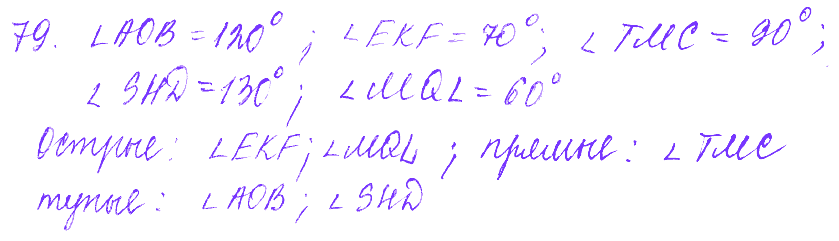 79. ∠AOB = 120°; ∠EKF = 70°; ∠TMC = 90°;
∠SHD = 130°; ∠MQL = 60°
острые: ∠EKF; ∠MQL; прямые: ∠TMC
тупые: ∠AOB; ∠SHD